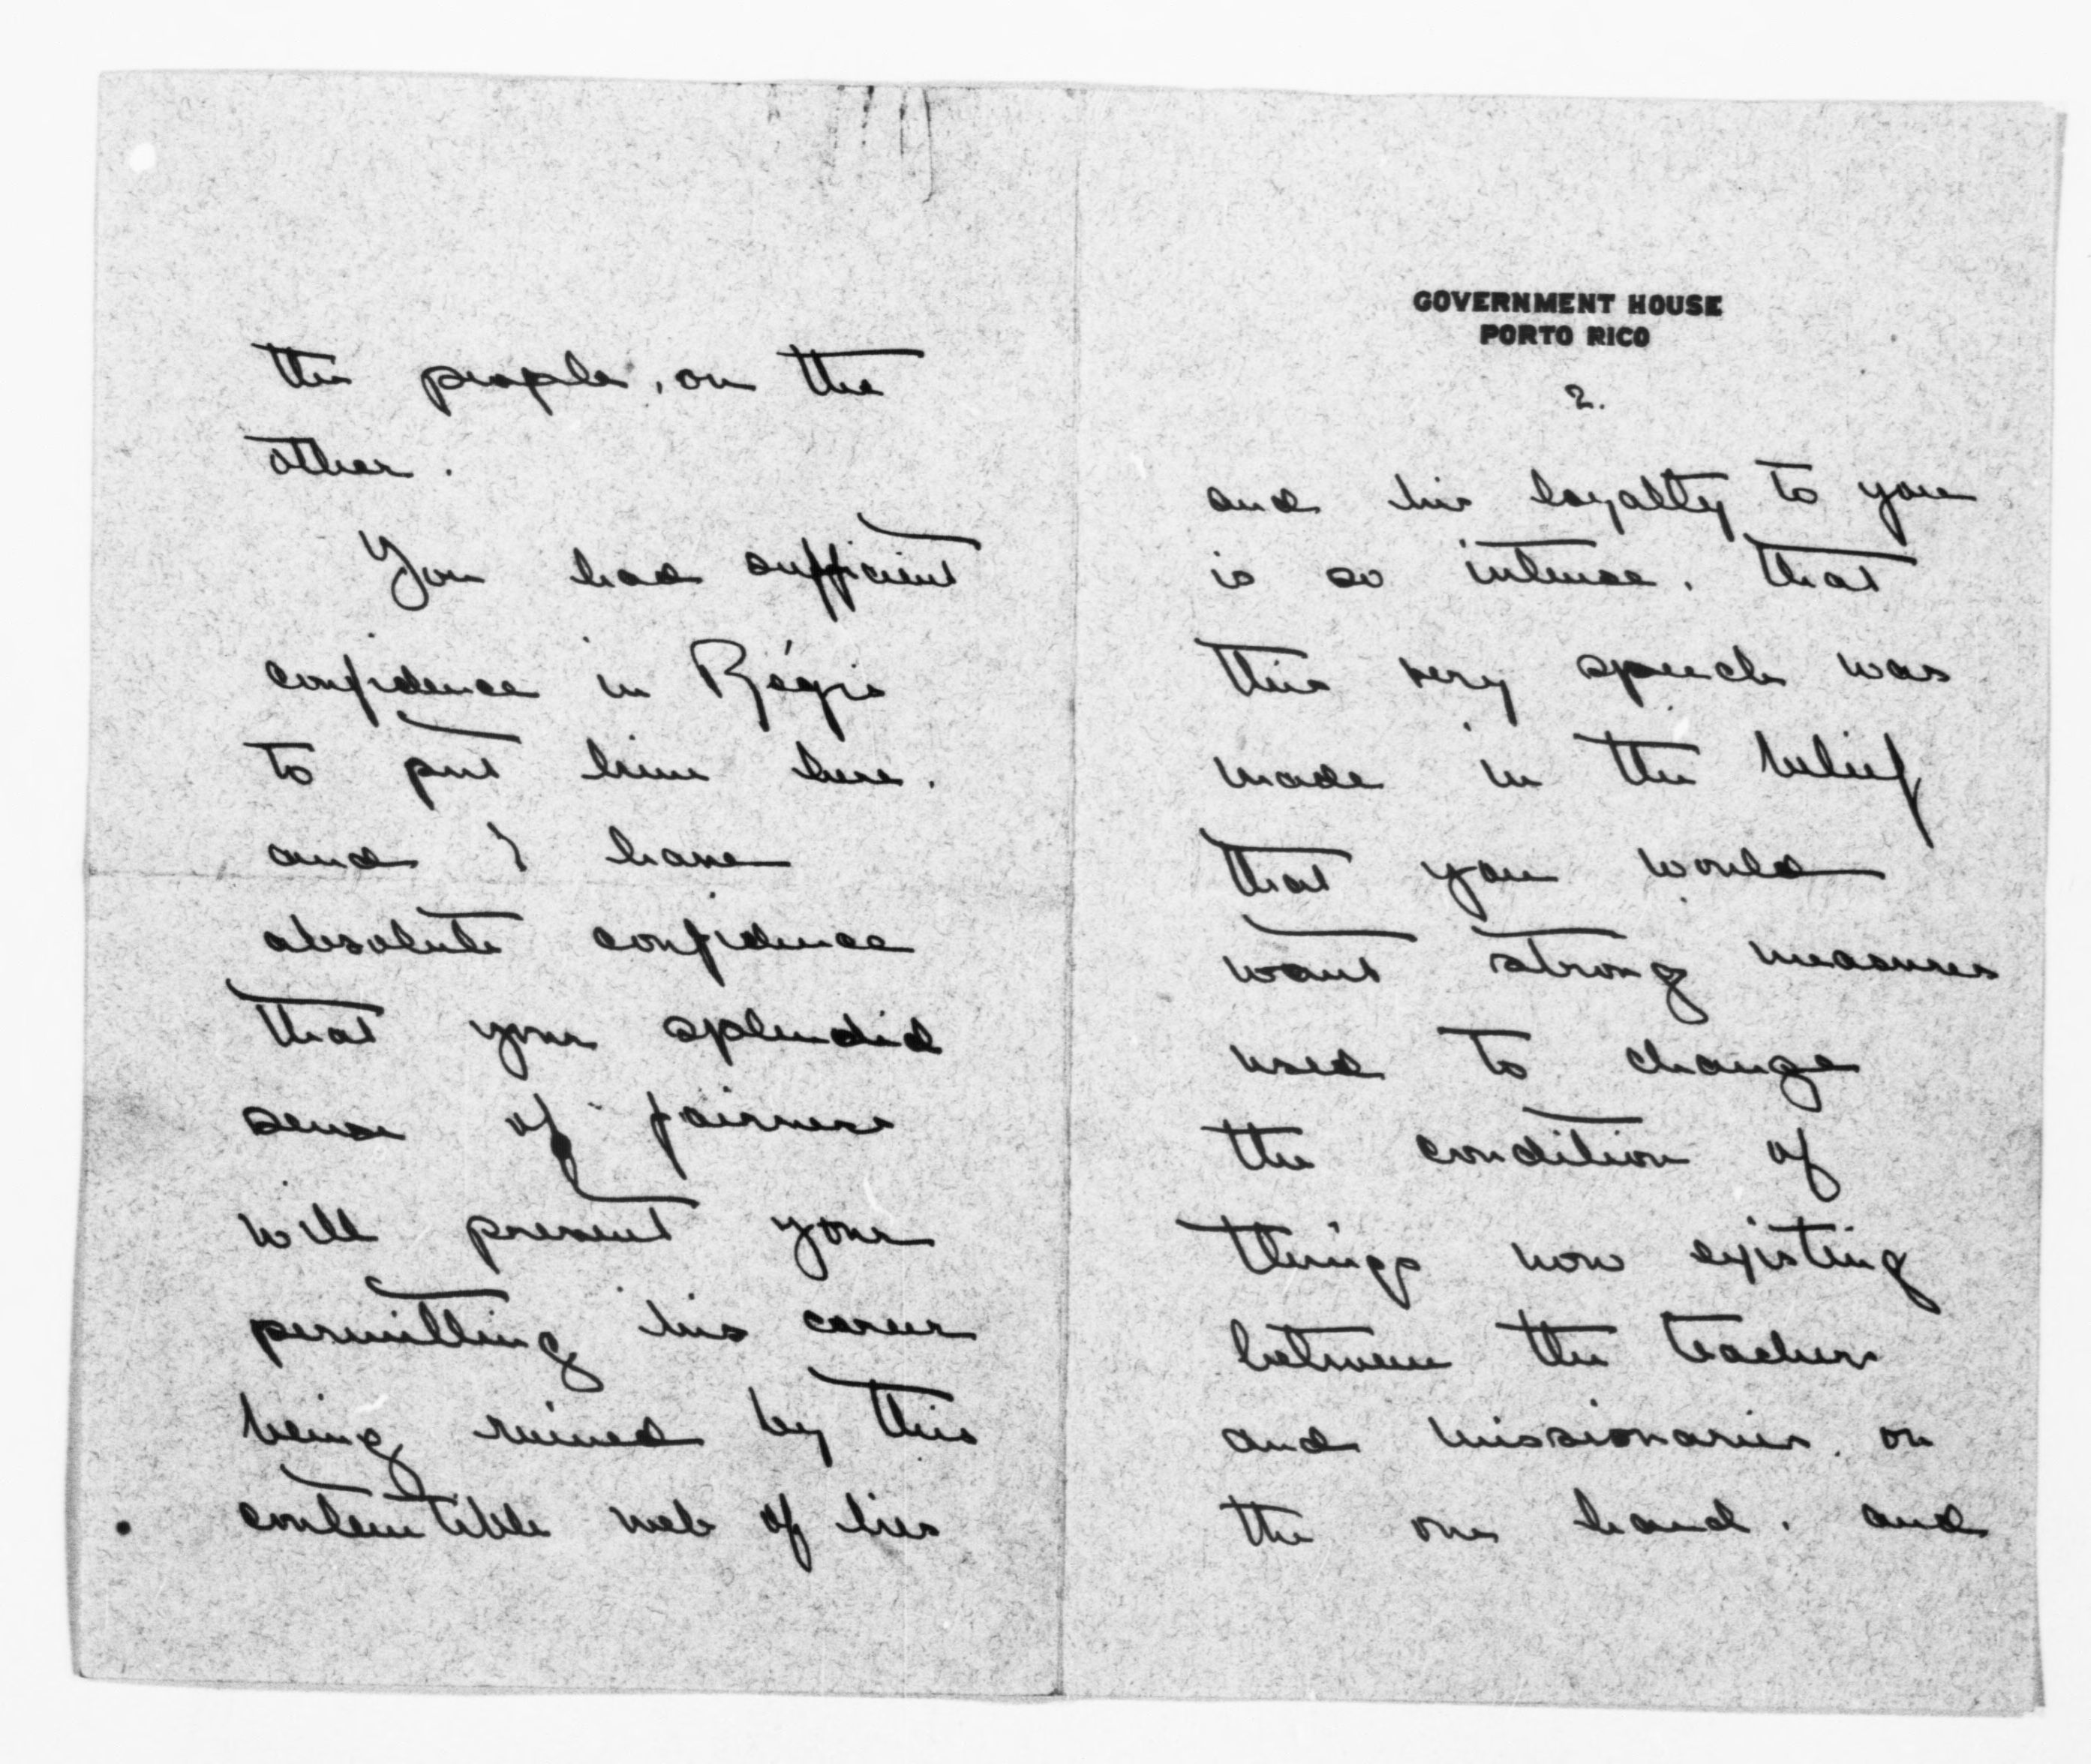 GOVERNMENT HOUSE
PORTO RICO
2.
and his loyalty to you
is so intense, that
this very speech was
made in the belief
that you would
want strong measures
used to change
the condition of
things now existing
between the teachers
and missionaries, on
the one hand, and
the people, on the
other.
You had sufficient
confidence in Régis
to put him here,
and I have
absolute confidence
that your splendid
sense of fairness
will prevent your
permitting his career
being ruined by this
contemtible web of lies